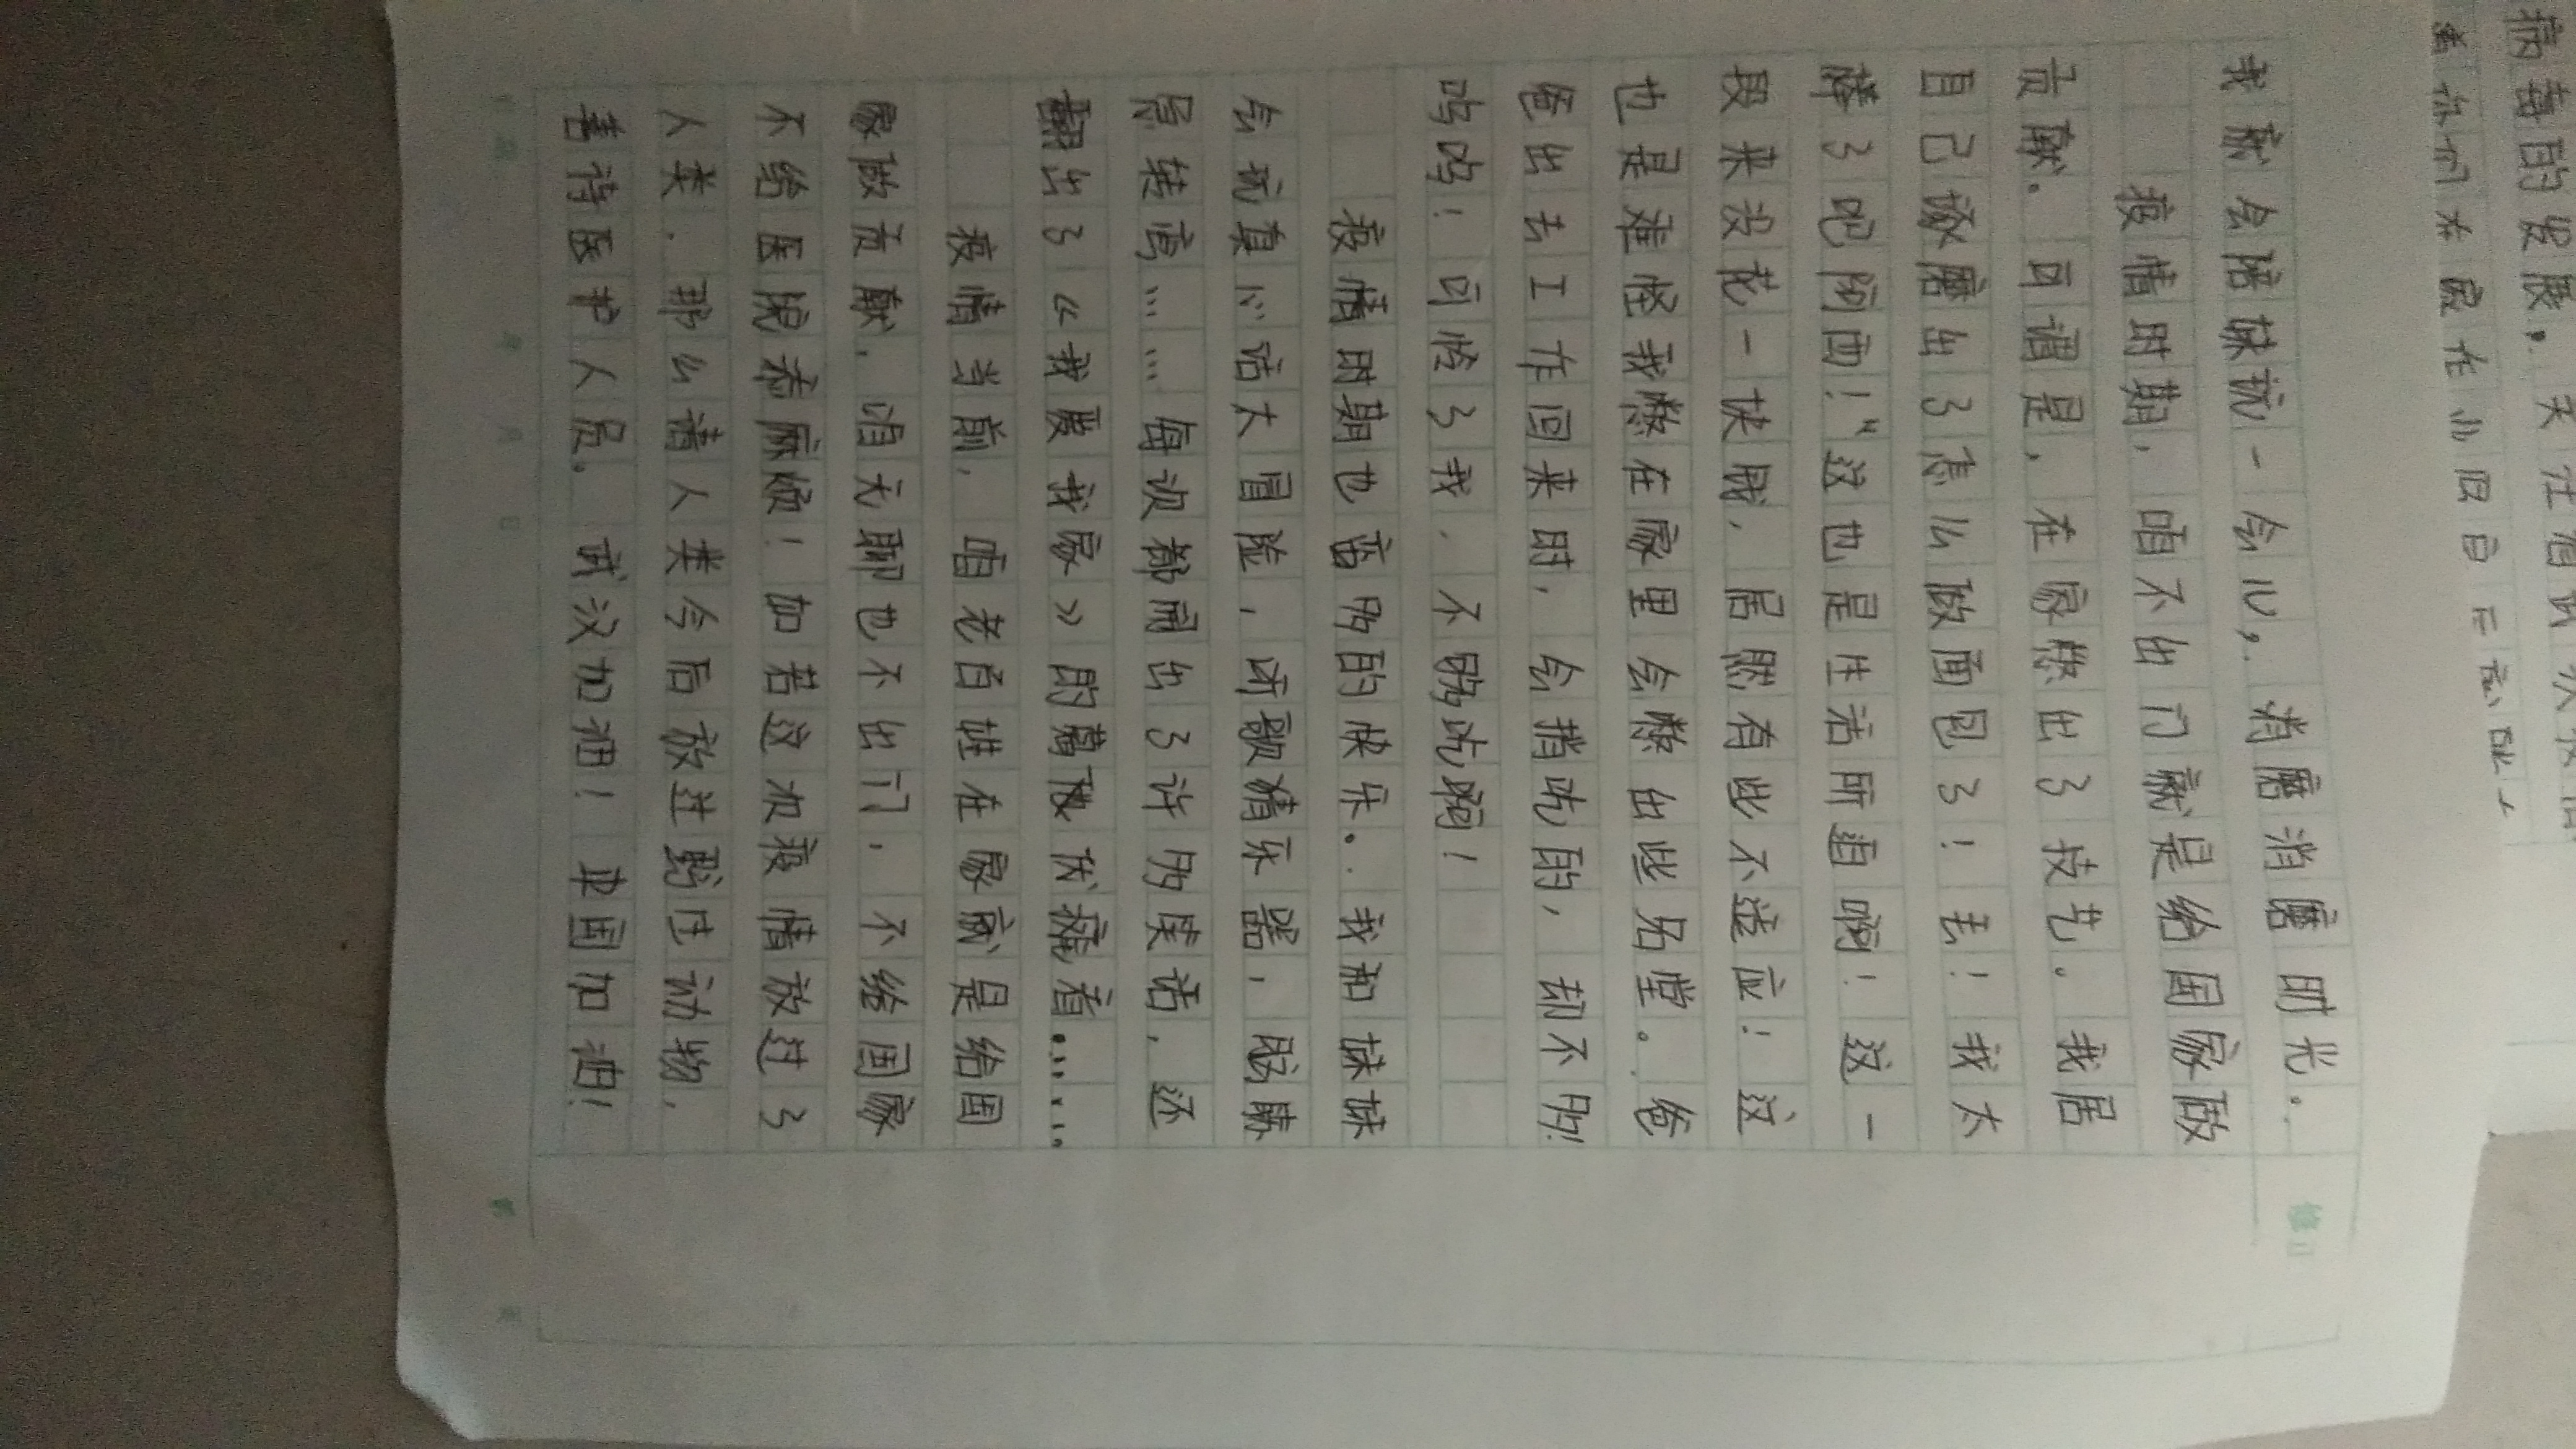 病毒的发展。
我就会陪妹玩一会儿，消磨消磨时光。
疫情时期，咱不出门就是给国家做
贡献。可谓是，在家憋出了技艺。我居
自己琢磨出了怎么做面包了！去！我太
棒了吧阿西！”这也是生活所迫啊！这一
段来没花一块钱，居然有些不适应！这
也是难怪我憋在家里会憋出些名堂。爸
爸出去工作回来时，会捎吃的，却不多！
呜呜！可怜了我，不够吃啊！
疫情时期也苦多的快乐。我和妹妹
会玩真心话大冒险，听歌猜乐器，脱膝
原转高……每次都闹出了许多笑话，还
翻出了《我爱我家》的葛优优瘫着……
疫情当前，咱老百姓在家就是给国
家做贡献，咱无聊也不出门，不给国家
不给医院添麻烦！如若这次疫情放过了
人类，那么请人类今后放过野生动物，
善待医护人员。武汉加油！中国加油！